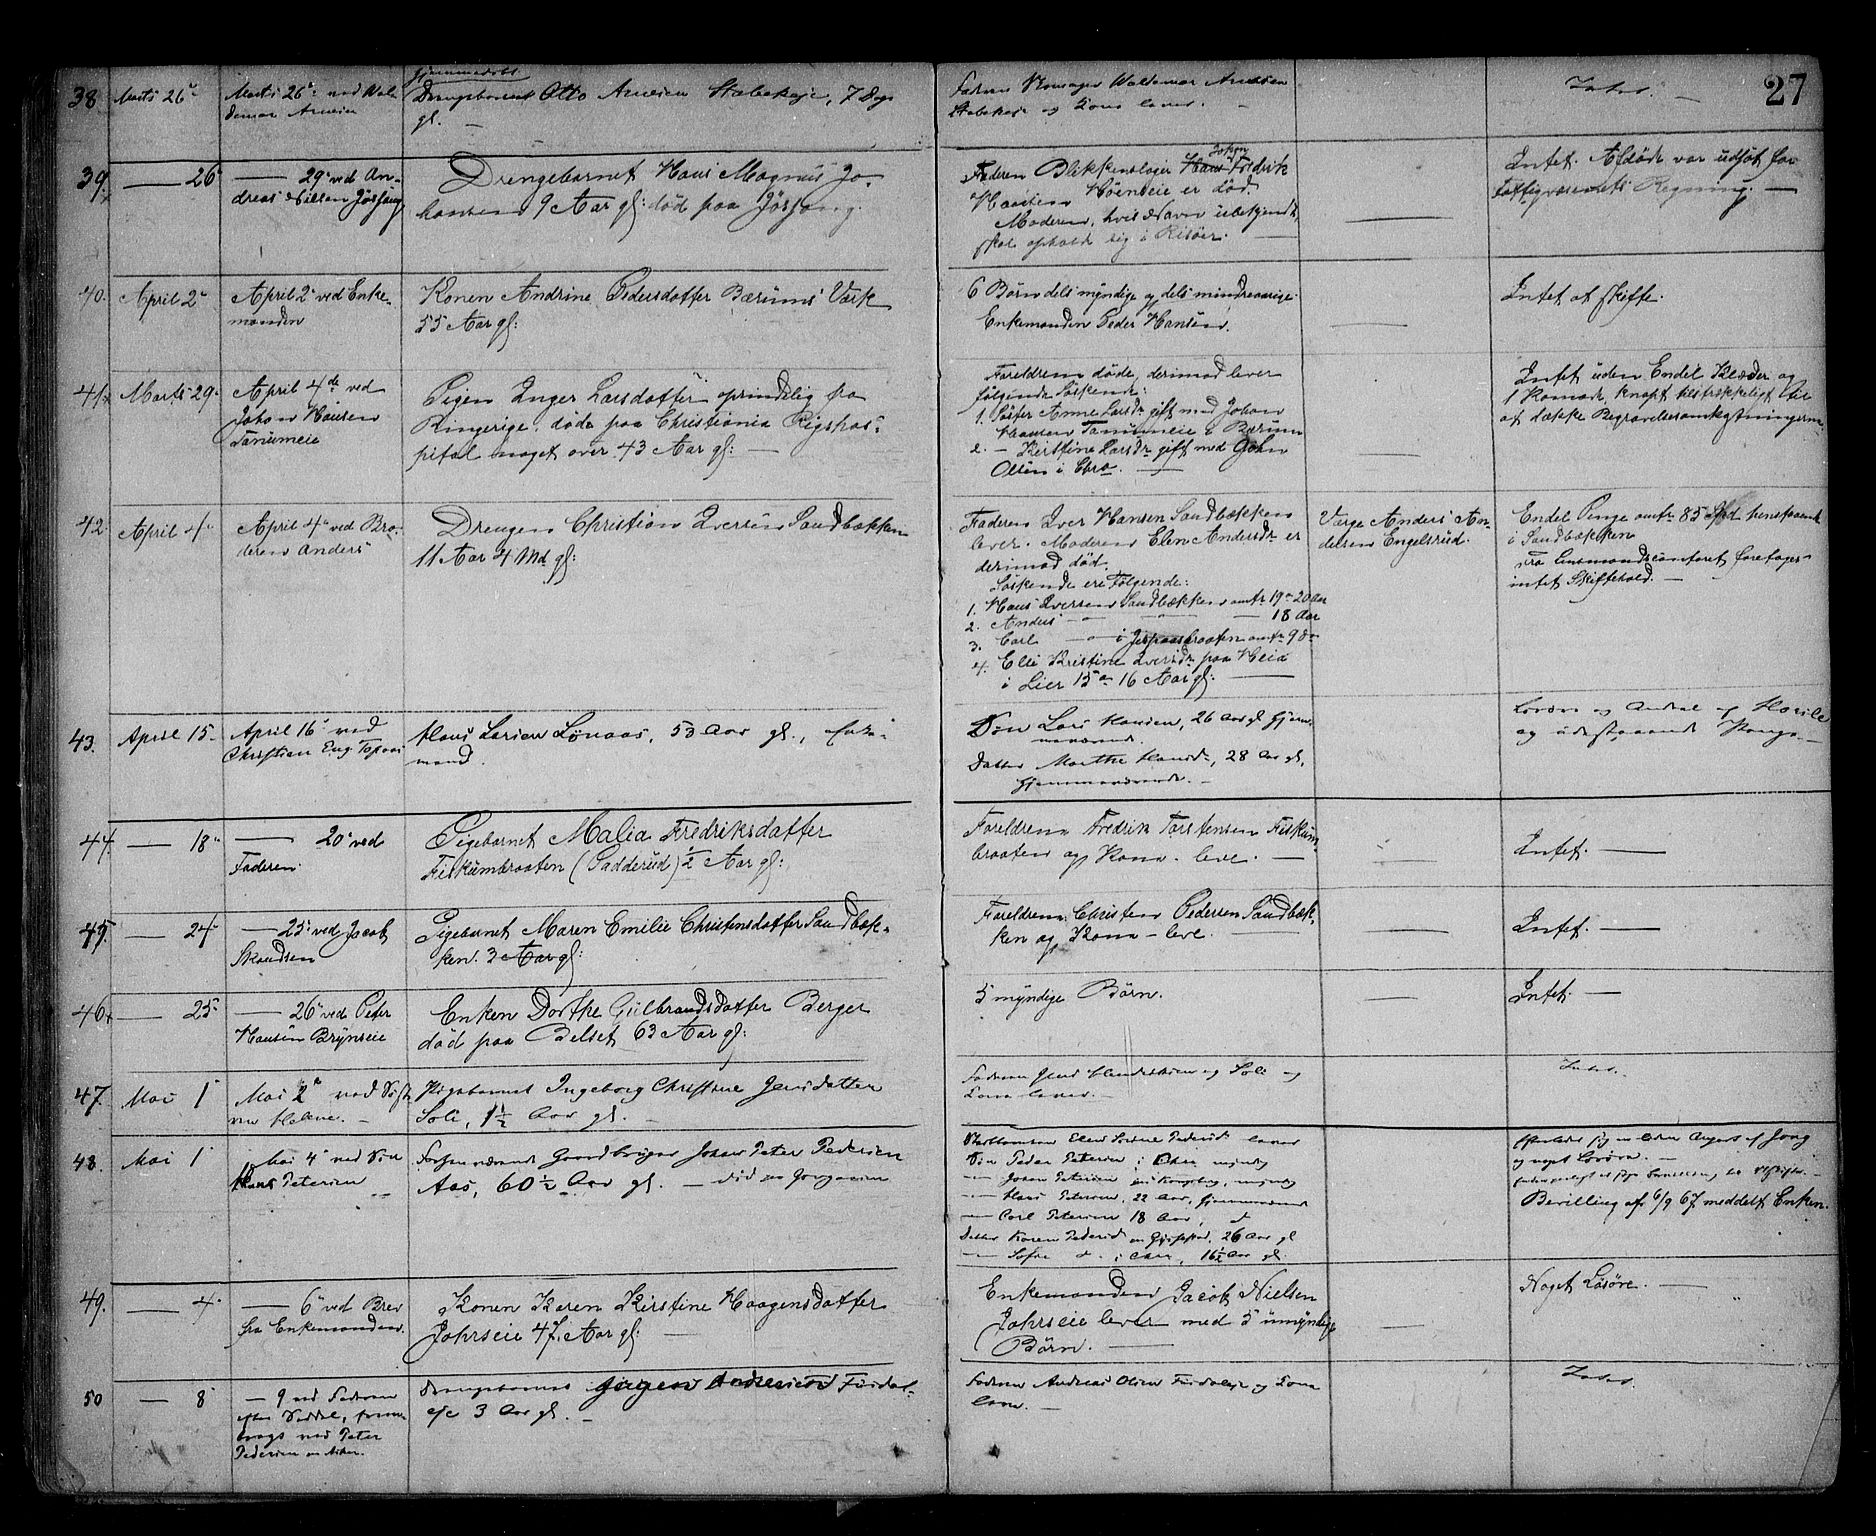 27
38 Marts 26de Marts 26de ved Wal-
demar Arnesen
Hjemmedøbt
Drengebarnet Otto Arnesen Stabekeje, 7 Dage
gl. —
Faderen Waldemar Arnesen
Stabekeje og Kone lever. —
Intet. —
39. — 26de — 29de ved An-
dreas Nilsen Jøssong
Drengebarnet Hans Magnus Jo-
hansen 9 Aar gl: død paa Jøssong.
Faderen Blikkenslager Hans Johan Fredrik
Hansen Høeneie er død
Moderen, hvis Navn ubekjendt,
skal opholde sig i Risöer. —
—
Intet. Afdøde var udsat for
Fattigvæsenets Regning. —
40. April 2de April 2de ved Enke-
manden
Konen Andrine Pedersdatter Bærums Værk
55 Aar gl:
6 Børn dels myndige og dels mindreaarige.
Enkemanden Peder Hansen.
—
Intet at skifte.
41. Marts 29de April 4de ved
Johan Hansen
Tanumeie
Pigen Inger Larsdatter oprindelig fra
Ringerige. døde paa Christiania Rigshos-
pital noget over 43 Aar gl: —
Foreldrene døde, derimod lever
følgende Søskende:
1. Søster Anne Larsdr gift med Johan
Hansen Tanumeie i Bærum
2. — Kirstine Larsdr gift med John
Olsen i Chra. —
—
Intet uden Endel Klæder og
1 Komode, knapt tilstrækkeligt til
at dække Begravelsesomkostningerne.
42. April 4de April 4de ved Bro-
deren Anders
Drengen Christian Iversen Sandbækken
11 Aar 4 Md gl:
Faderen Iver Hansen Sandbækken
lever. Moderen Elen Andersdr er
derimod død.
Søskende ere Følgende:
1. Hans Iversen Sandbækken omtr 19 a 20 Aar
2. Anders — " — — 18 Aar
3. Carl — " — i Jespaasbraaten omtr 9 do
4. Elli Kristine Iversdr paa Heia
i Lier 15 a 16 Aar gl: —
Værge Anders An-
dersen Engelsrud.
Endel Penge omtr 85 Spd henstaaende
i Sandbækken
Fra Lensmandscontoret foretages
intet Skiftehold. —
43. April 15de April 16de ved
Christian Eng Topaas
Hans Larsen Lønaas, 53 Aar gl., Enke-
mand.
Søn Lars Hansen, 26 Aar gl hjem-
meværende.
Datter Marthe Hansdr, 28 Aar gl,
hjemmeværende. —
Løsøre og Andel af
og udestaaende Penge. —
44. — 18de — 20de ved
Faderen
Pigebarnet Malia Fredriksdatter
Fiskumbraaten (Padderud) ½ Aar gl:
Foreldrene Fredrik Torstensen Fiskum-
braaten og Kone leve. —
—
Intet. —
45. — 24de — 25de ved Jacob
Knudsen
Pigebarnet Maren Emilie Christensdatter Sandbæk-
ken. 3 Aar gl:
Foreldrene: Christen Pedersen Sandbæk-
ken og Kone — leve. —
—
Intet. —
46. — 25de — 26de ved Peter
Hansen Brynseie
Enken Dorthe Gulbrandsdatter Berger
død paa Belset 63 Aar gl:
5 myndige Børn.
—
Intet. —
47. Mai 1de Mai 2de ved
Helene. —
Pigebarnet Ingeborg Christine Jensdatter
Soli, 1½ Aar gl. —
Faderen Jens Soli og
Kone lever. —
Intet.
48. Mai 1de Mai 4de ved Søn
Hans Petersen
Forhenværende Gaardbruger Johan Peter Pedersen
Aas, 60½ Aar gl. —
Elen Pedersdr lever
Søn Peder Petersen i Chra, myndig
— Johan Petersen paa Kongsberg, myndig
— Hans Petersen, 22 Aar, hjemmeværende
— Carl Petersen 18 Aar, do
Datter Karen Pedersdr 26 Aar gl
— Sofie do i Chra, 16½ Aar gl.
—
og noget Løsøre. —
Bevilling af 6/9 67 meddelt Enken.
49. — 4de — 6de ved Brev
fra Enkemanden.
Konen Karen Kirstine Haagensdatter
Johrseie 47 Aar gl: —
Enkemanden Jacob Nielsen
Johrseie lever med 5 umyndige
Børn. —
—
Noget Løsøre. —
50 — 8de — 9 ved Faderen
efter Seddel, frem-
bragt ved Peter
Pedersen
Drengebarnet Jørgen Andersen Furdal-
eje 3 Aar gl. —
Faderen Andreas Olsen Furdaleje og Kone
lever. —
Intet.